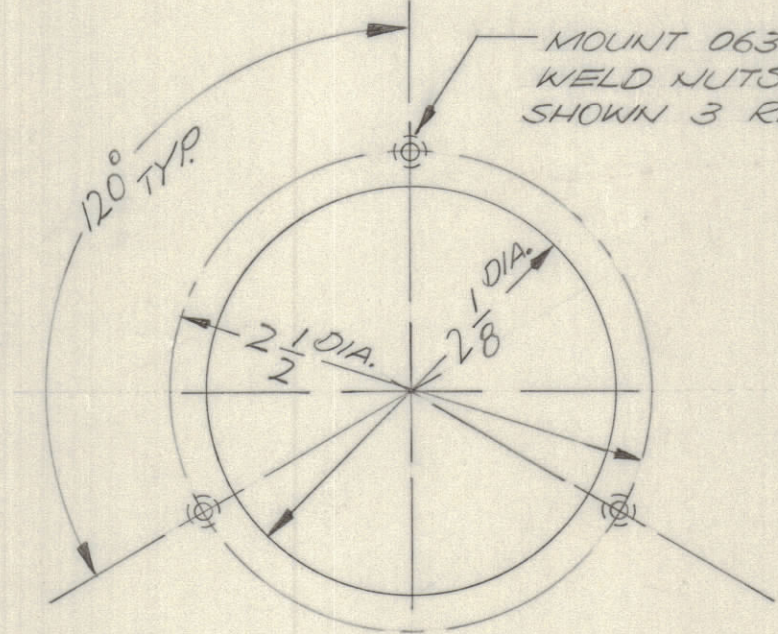 MOUNT 063
WELD NUTS
SHOWN 3
120° TYP.
2 1/2 DIA.
2 1/8 DIA.